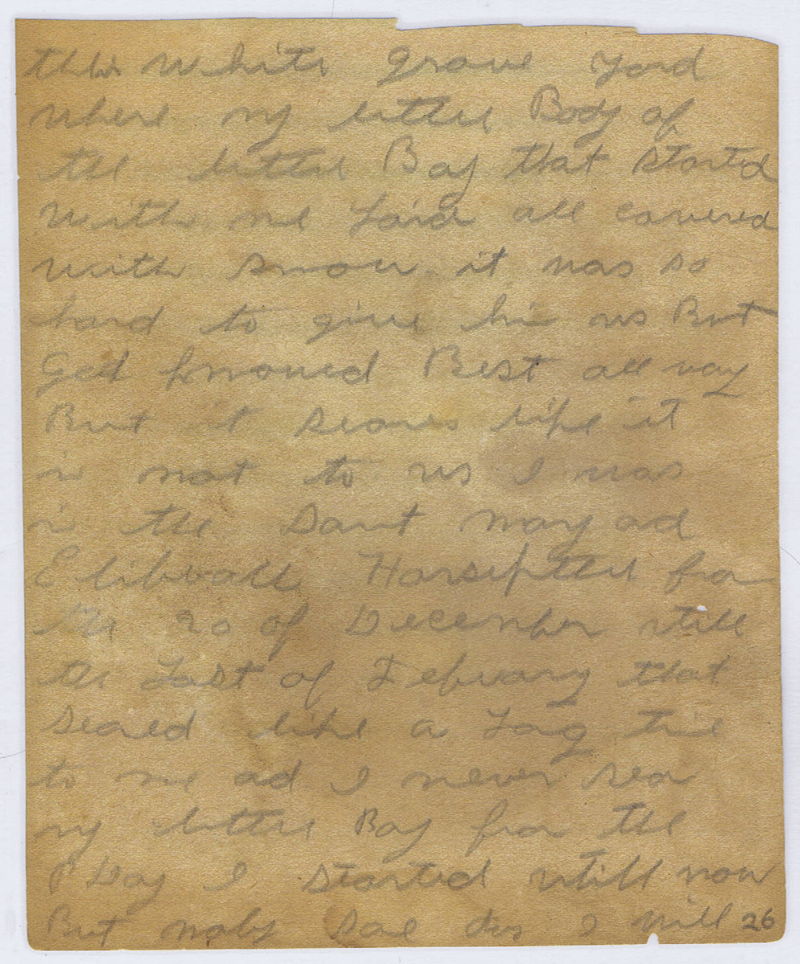 this white grave yard
where my little Body of
the little Boy that started
with me Laid all covered
with snow it was so
hard to give hi us But
God knowed Best all way
But it seames like it
is not to us I was
in the Saut may ad
Harsiptle from
the 20 of December still
the Last of Febuary that
seamed like a Long time
to me ad I never sea
my little Boy from the
Day I started utill now
But I will 26